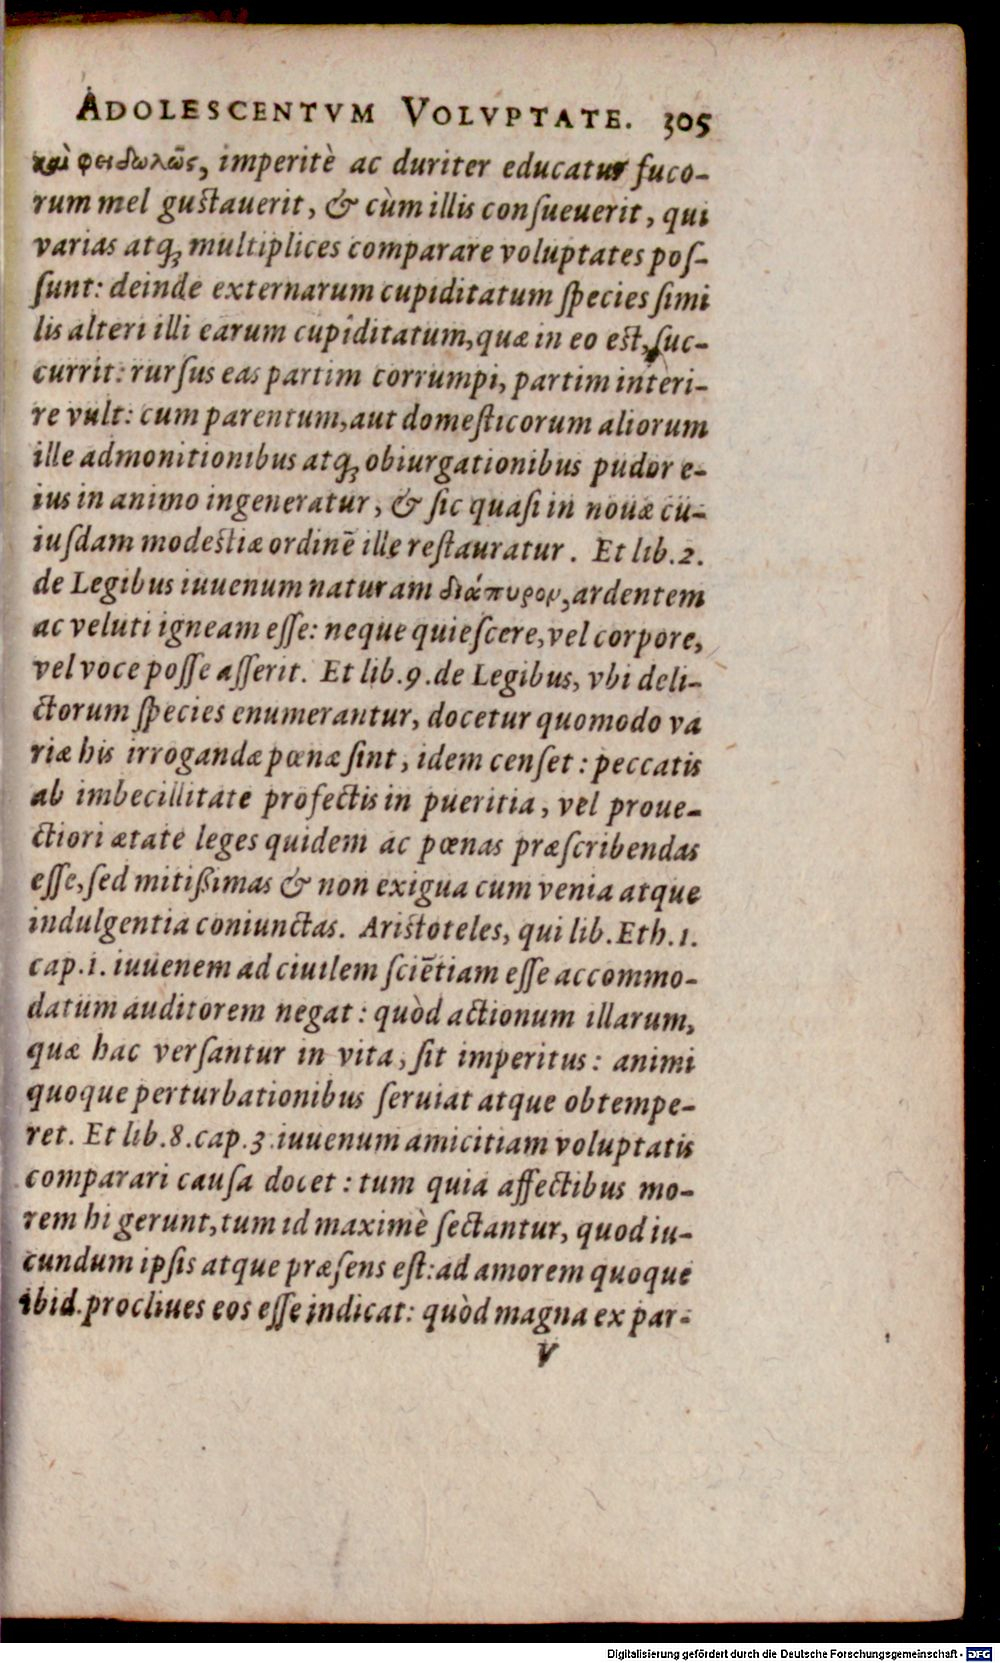 ADOLESCENTVM VOLVPTATE. 305
καὶ φειδωλῶς, imperitè ac duriter educatur fuco-
rum mel gustauerit, & cùm illis conſueuerit, qui
varias atq; multiplices comparare voluptates poſ-
ſunt: deinde externarum cupiditatum ſpecies ſimi
lis alteri illi earum cupiditatum, quæ in eo est, ſuc-
currit: rurſus eas partim corrumpi, partim interi-
re vult: cum parentum, aut domeſticorum aliorum
ille admonitionibus atq; obiurgationibus pudor e-
ius in animo ingeneratur, & ſic quaſi in nouæ cu-
iuſdam modestiæ ordinē ille reſtauratur. Et lib. 2.
de Legibus iuuenum naturam διάπυρον, ardentem
ac veluti igneam eſſe: neque quieſcere, vel corpore,
vel voce poſſe aſſerit. Et lib. 9. de Legibus, vbi deli-
ctorum ſpecies enumerantur, docetur quomodo va
riæ his irrogandæ pœnæ ſint, idem cenſet: peccatis
ab imbecillitate profectis in pueritia, vel proue-
ctiori ætate leges quidem ac pœnas præſcribendas
eſſe, ſed mitißimas & non exigua cum venia atque
indulgentia coniunctas. Aristoteles, qui lib. Eth. 1.
cap. 1. iuuenem ad ciuilem ſciētiam eſſe accommo-
datum auditorem negat: quòd actionum illarum,
quæ hac verſantur in vita, ſit imperitus: animi
quoque perturbationibus ſeruiat atque obtempe-
ret. Et lib. 8. cap. 3. iuuenum amicitiam voluptatis
comparari cauſa docet: tum quia affectibus mo-
rem hi gerunt, tum id maximè ſectantur, quod iu-
cundum ipſis atque præſens eſt: ad amorem quoque
ibid. procliues eos eſſe indicat: quòd magna ex par-
V
Digitalisierung gefördert durch die Deutsche Forschungsgemeinschaft - DFG